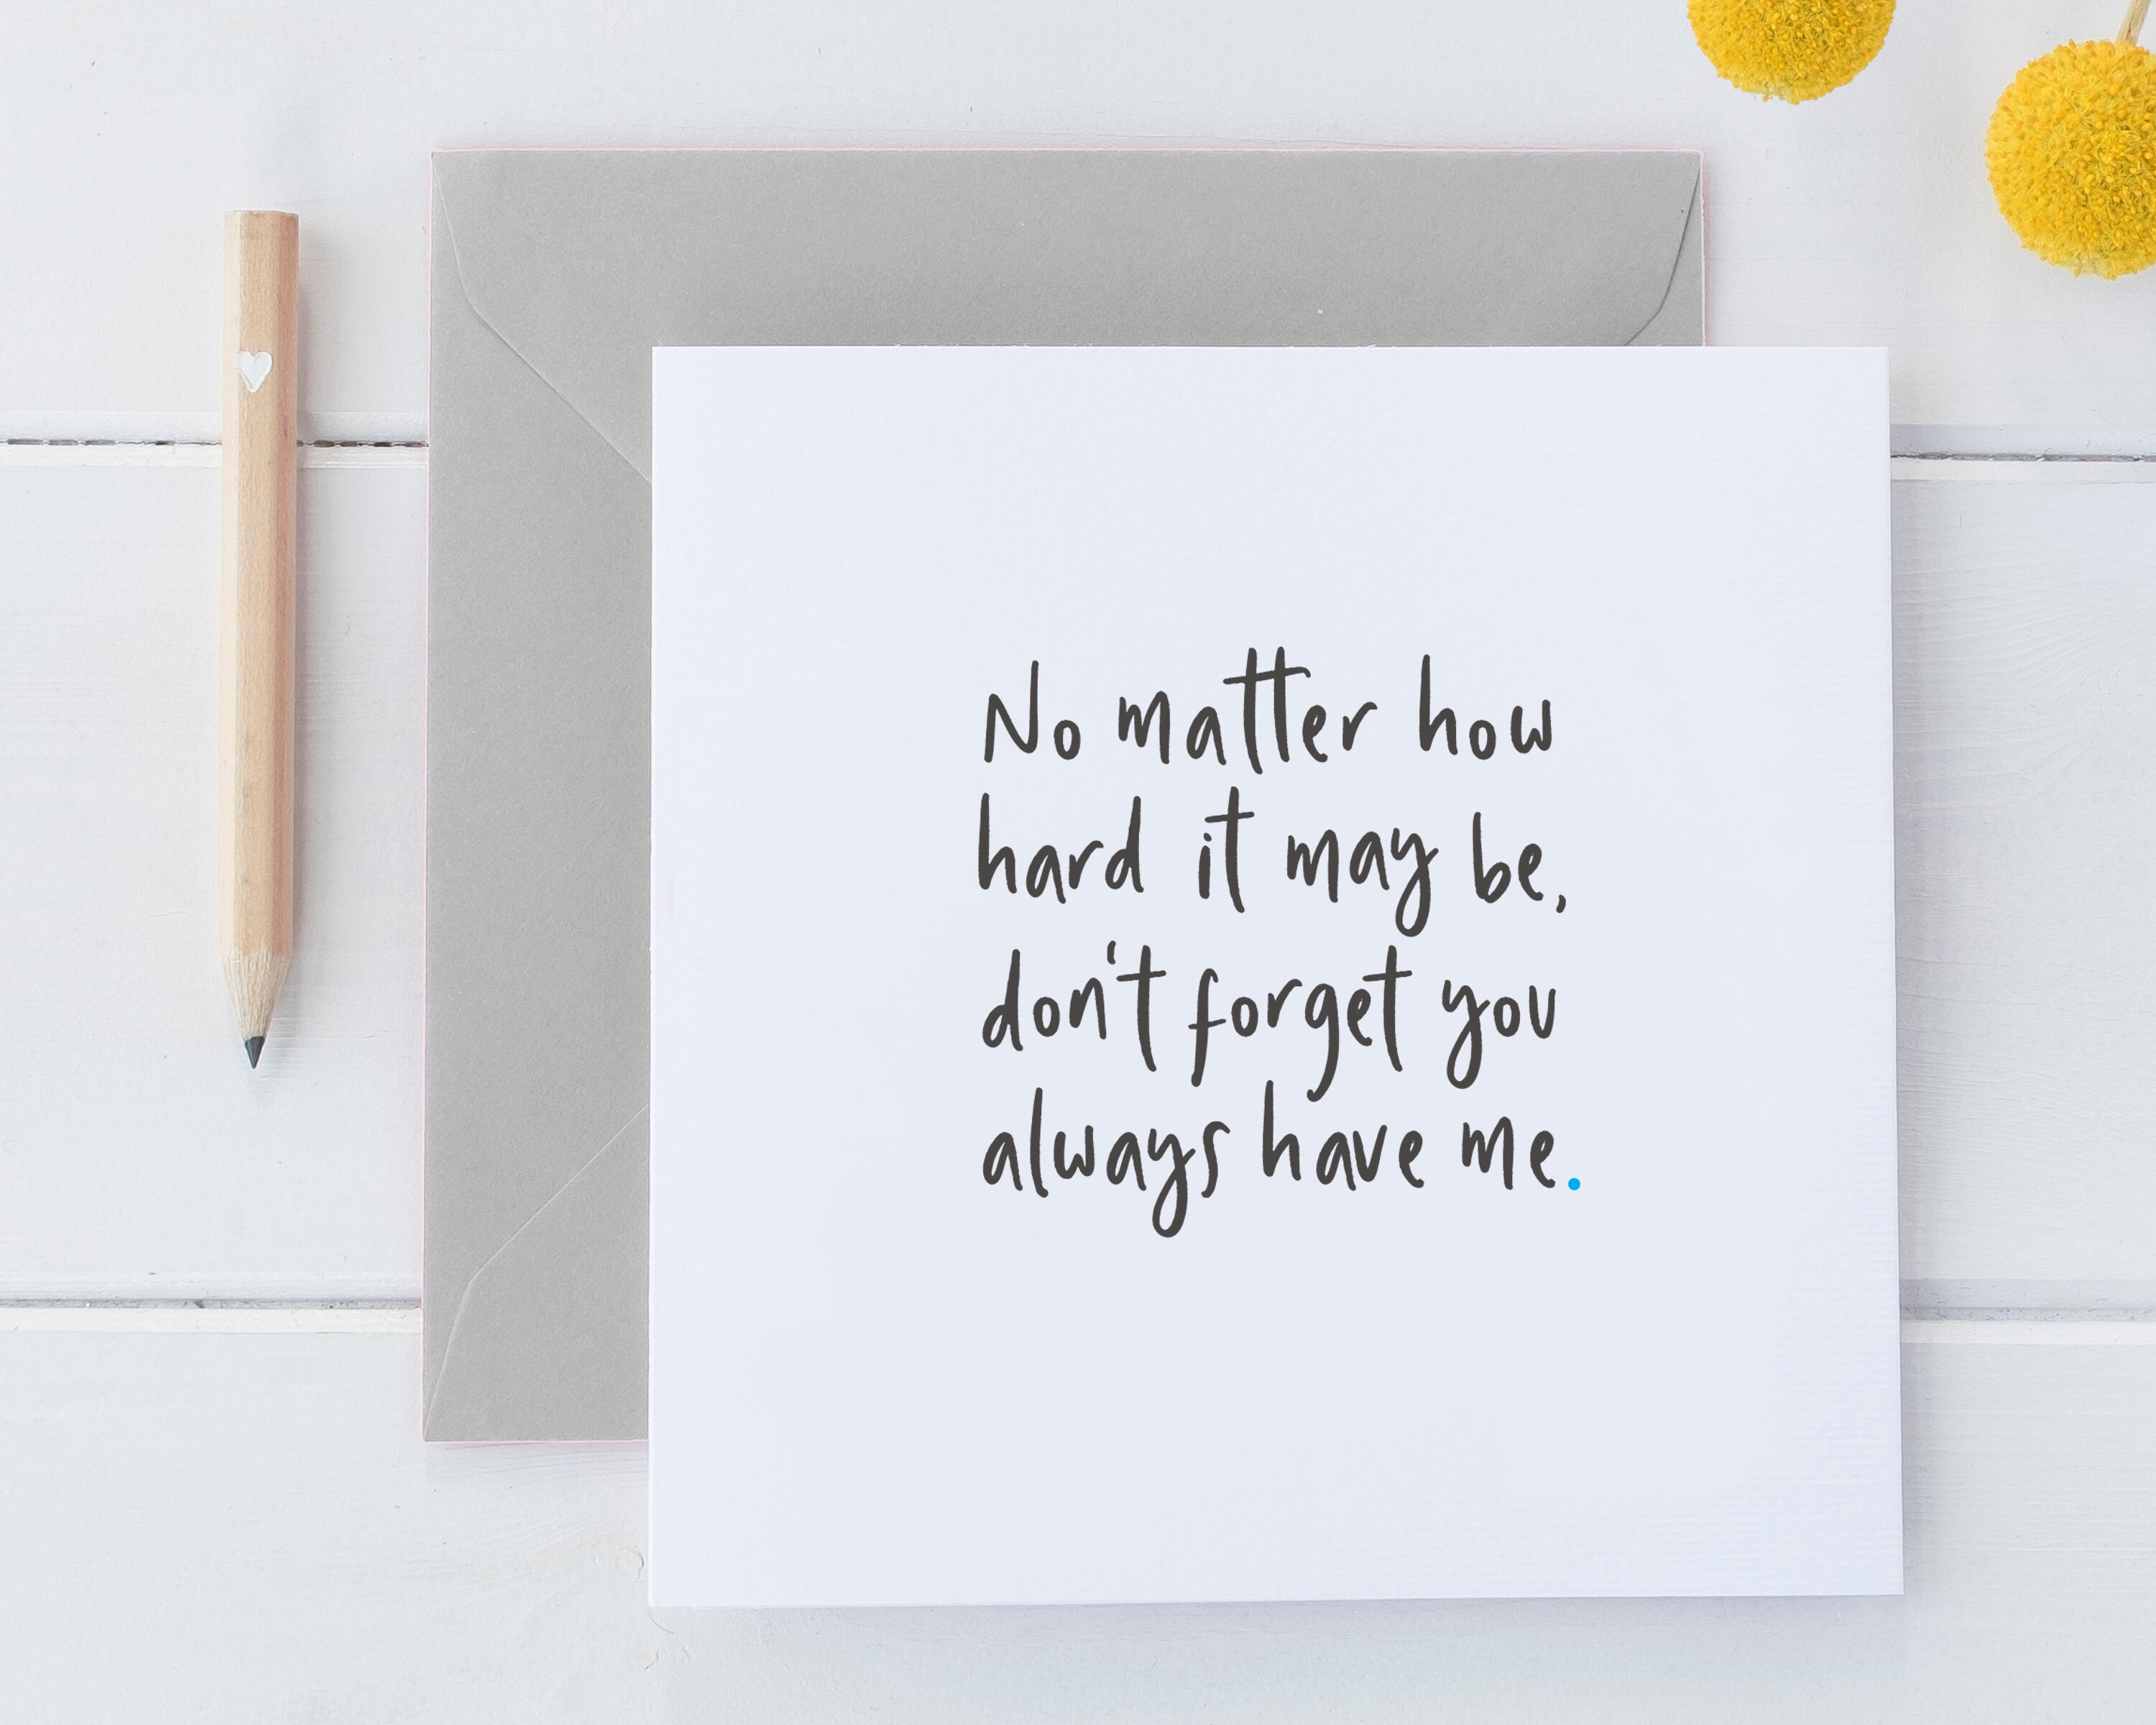 No matter how
hard it may be,
don't forget you
always have me.